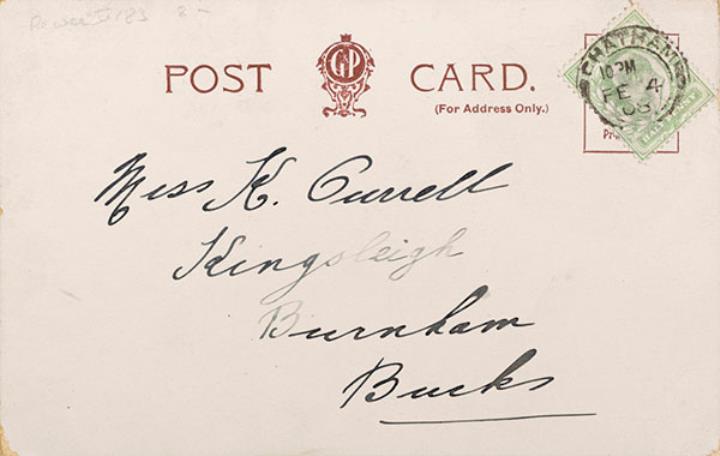 POST GP CARD.
(For Address Only.)
CHATHAM
10 PM
FE 4
HALFPENNY
Miss K. Currell
Kingsleigh
Burnham
Bucks